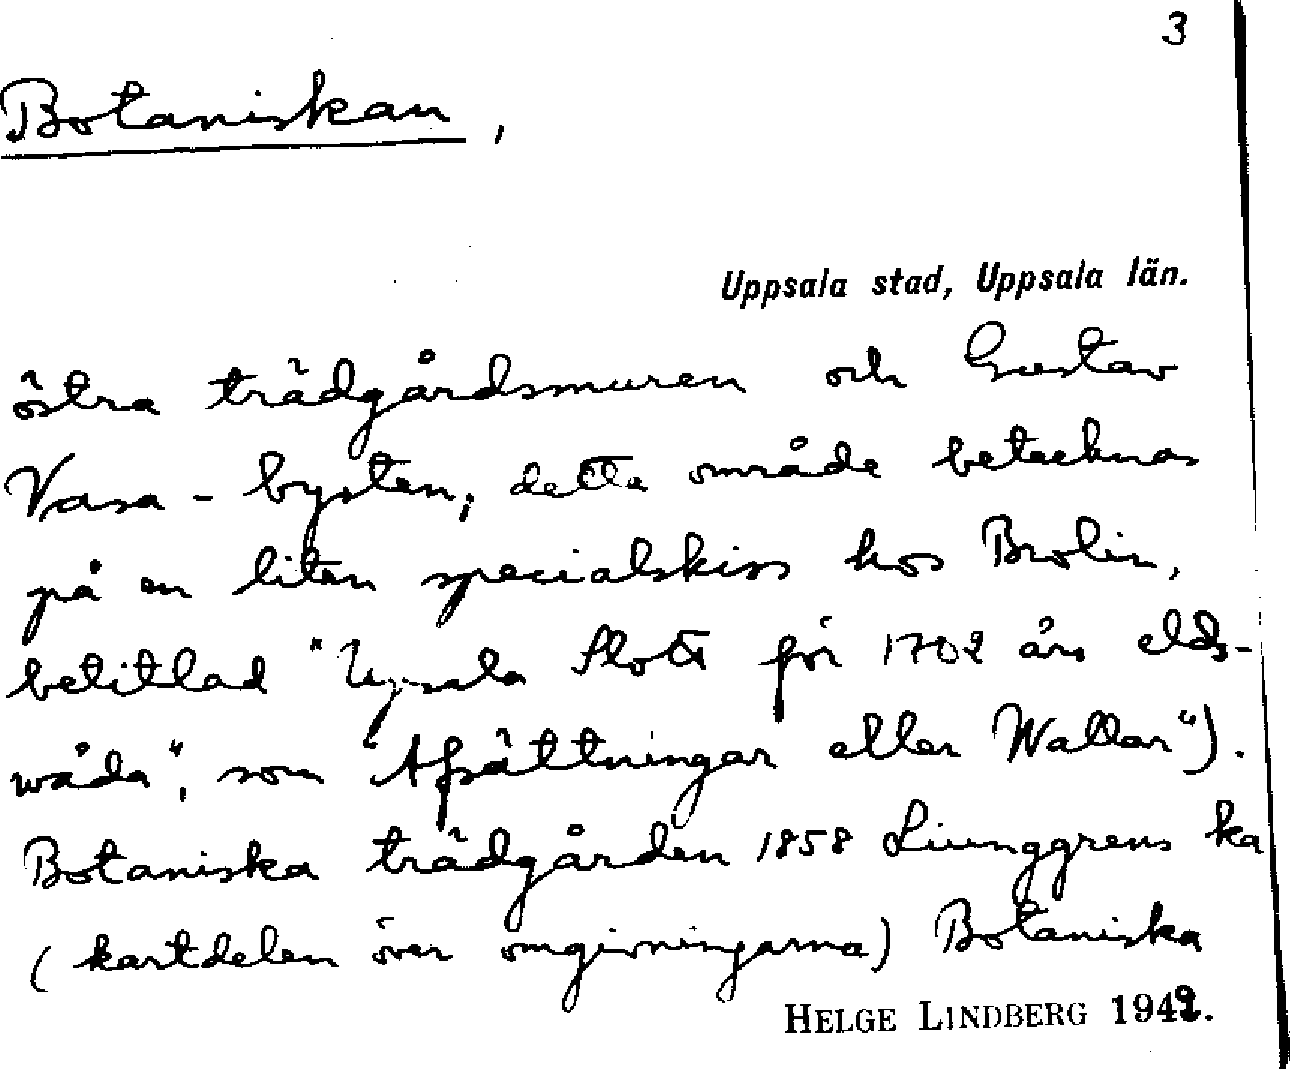 3
Botaniskan,
Uppsala stad, Uppsala län.
östra trädgårdsmuren och Gustav
Vasa-bysten; detta område betecknas
på en liten specialskiss hos Brolin,
betitlad "Upsala Slott för 1702 års elds-
wåda", som "Afsättningar eller Wallar").
Botaniska trädgården 1858 Liunggrens ka
(kartdelen över omgivningarna) Botaniska
HELGE LINDBERG 1942.